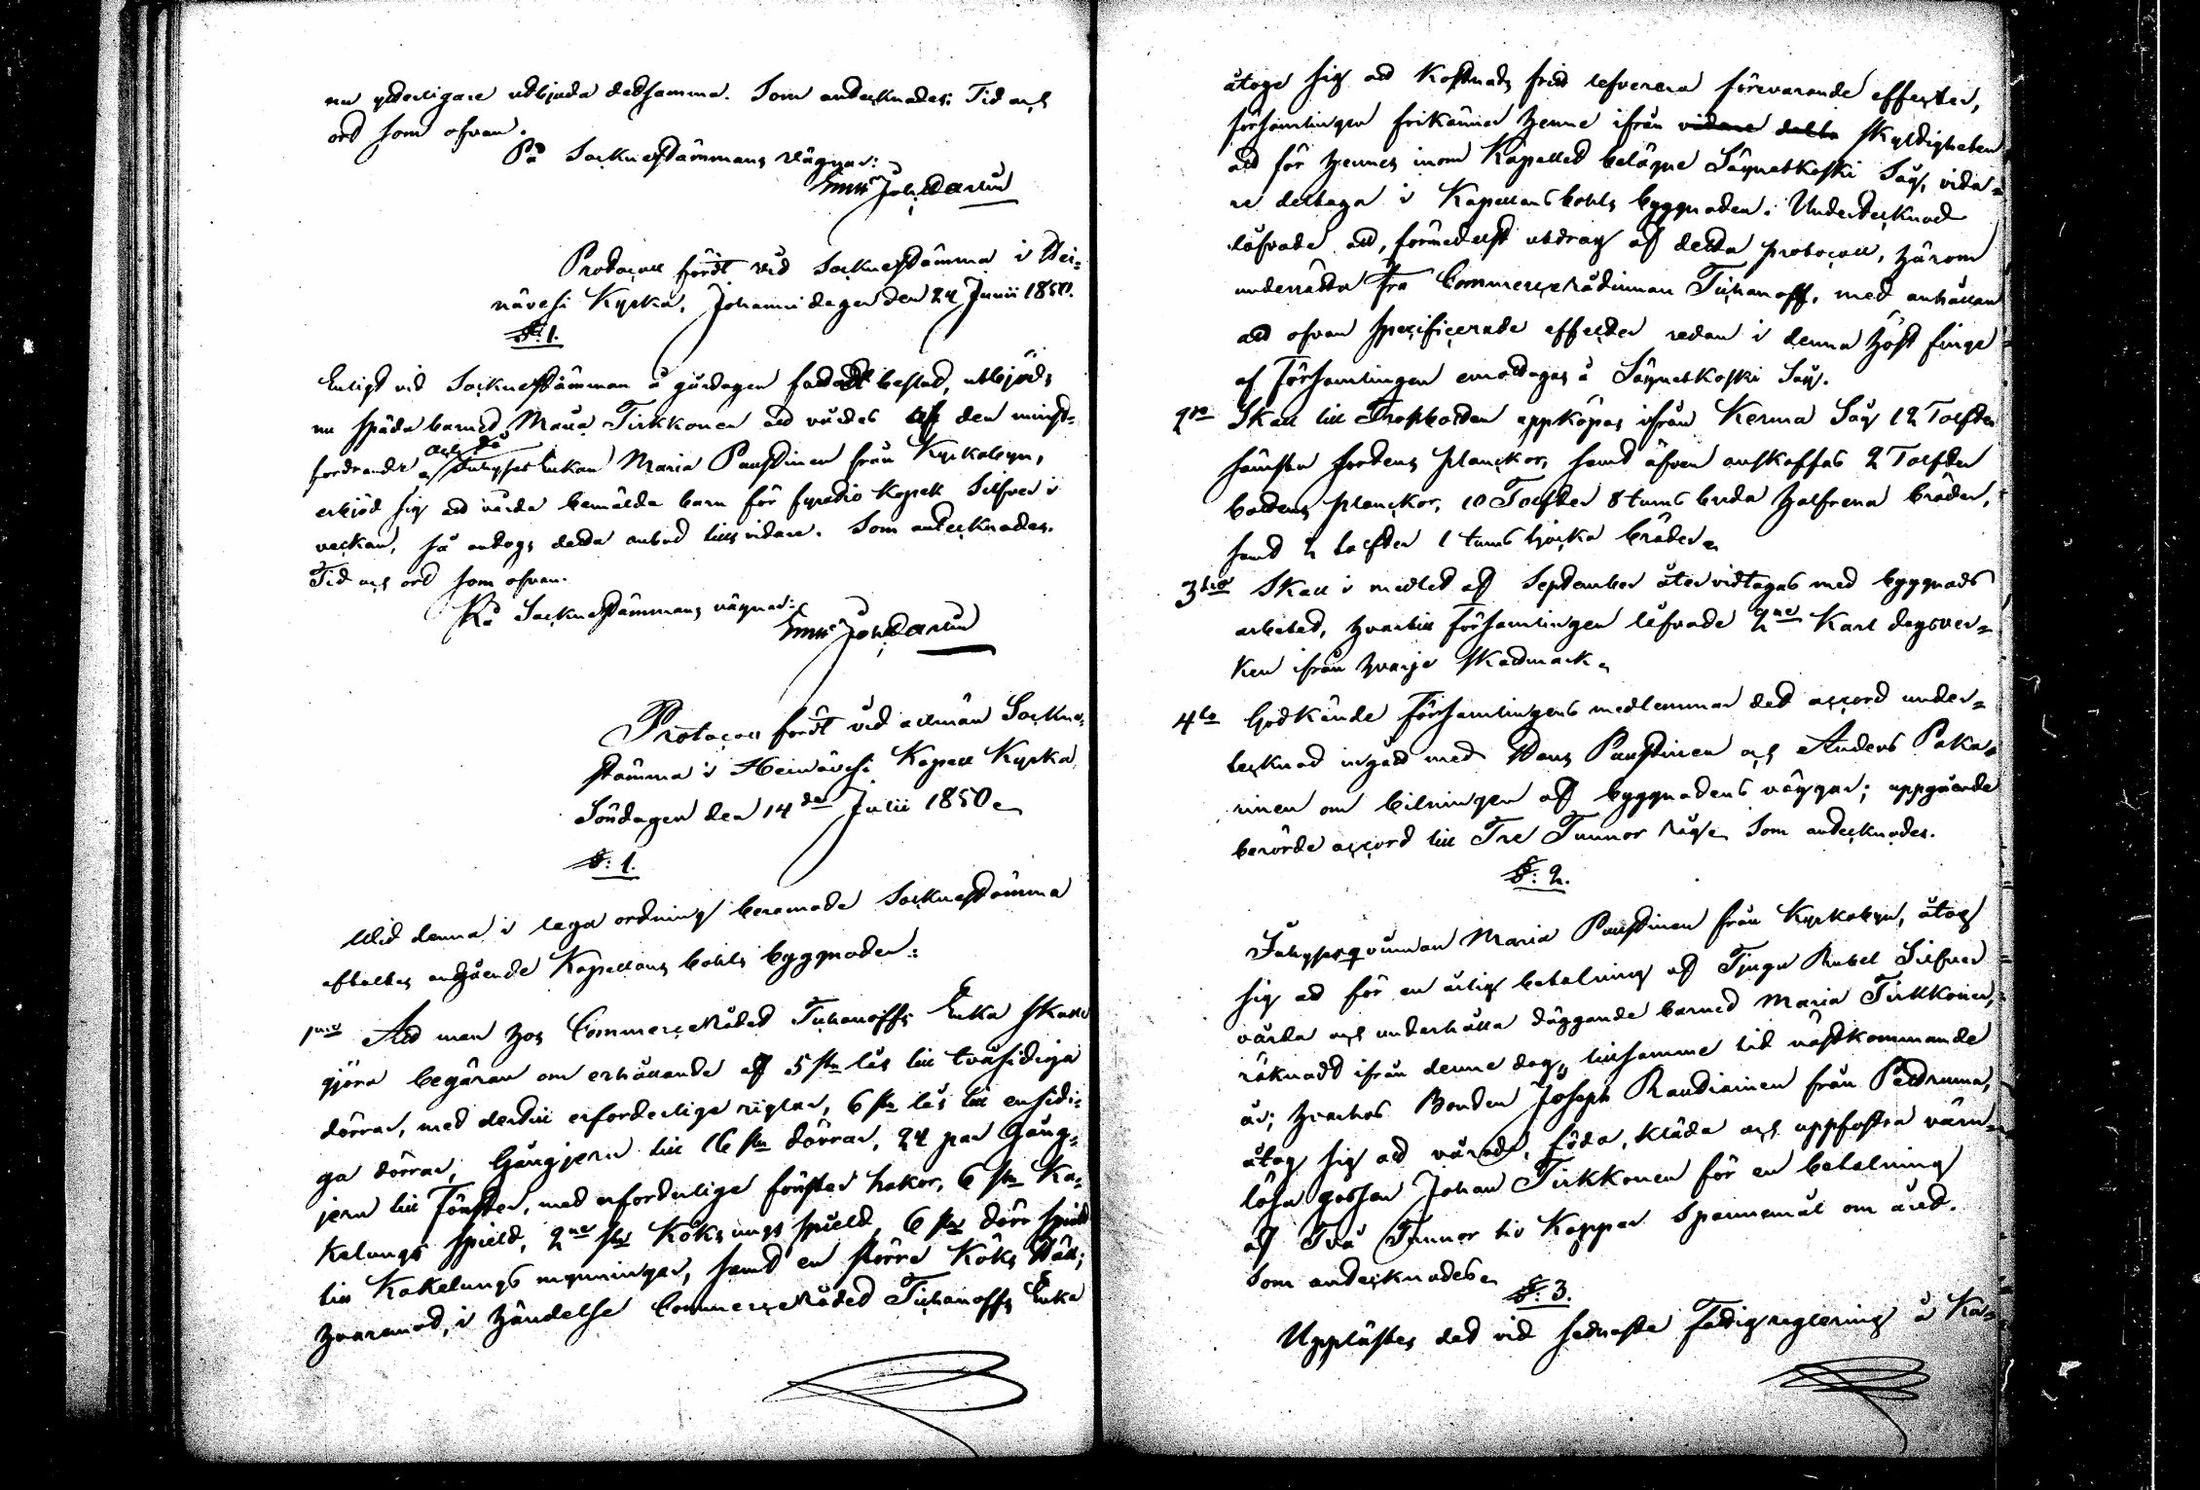 nu ytterligare utbjuda detsamma. Som antecknades. Tid och
ort som ofvan.
På Socknestämmans vägnar:
Joh. Darlin
Protocoll fördt vid Socknestämma i Hei-
nävesi Kyrka, Johannidagen den 24 Junii 1850.
§. 1.
Enligt vid Sockneståmman å gårdagen fattadt beslut, utbjöds
nu späda barnet Maria Tirkkonen att vårdas af den minst-
fordrande och då Inhyses Enkan Maria Paustinen från Kyrkobyn,
erbjöd sig att vårda bemälda barn för fyratio Kopek Silfver i
veckan, så antogs detta anbud tillsvidare. Som antecknades.
Tid och ort som ofvan.
På Sockneståmmans vägnar:
Joh. Darlin
Protocoll fördt vid allmän Sockne-
stämma i Heinävesi Kapell Kyrka
Söndagen den 14de Julii 1850.
§. 1.
Wid denna i laga ordning beramade Sockneståmma
aftaltes angående Kapellans bohls byggnaden:
1mo Att man hos CommerceRådet Tichanoffs Enka skall
göra begäran om erhållande af 5 st. lås till tvåsidiga
dörrar, med dertill erforderliga riglar, 6 st. lås till ensidi-
ga dörrar, Gångjern till 16 st. dörrar, 24 par Gång-
jern till Fönster, med erforderliga fönster hakor, 6 st. Ka-
kelungs spield, 2ne st. Köksungs spield, 6 st. dörr spield
till Kakelungs mynningar, samt en större Köks Häll;
hvaremot, i händelse CommerceRådet Tichanoffs Enka
åtoge sig att kostnads fritt lefverera förevarande effecter,
församlingen frikänner henne ifrån vidare skyldigheten
att för hennes inom Kapellet belägne Säynetkoski Såg, vida-
re deltaga i Kapellansbohls byggnaden. Undertecknad
låfvade att, förmedelst utdrag af detta protocoll, härom
underrätta Fru CommerceRådinnan Tichanoff, med anhållan
att ofvan specificerade effecter redan i denna höst finge
af Församlingen emottagas å Säynetkoski Såg.
2do Skall till Trossbotten uppköpas ifrån Kerma Såg 12 Tolfter
sämsta sortens plankor, samt äfven anskaffas 2 Tolfter
bottens plankor, 10 Tolfter 8 tums breda halfrena bräder,
samt 2 tolfter 1 tums tjocka bräder.
3tio Skall i medlet af September återvidtagas med byggnads
arbetet, hvartill Församlingen låfvade 2ne Karl dagsver-
ken ifrån hvarje skattmark.
4to Godkände Församlingens medlemmar det accord under-
tecknad ingått med Hans Paustinen och Anders Paka-
rinen om bilningen af byggnadens väggar; uppgående
berörde accord till Tre Tunnor råg. Som antecknades.
§. 2.
Inhysesqvinnan Maria Paustinen från Kyrkobyn, åtog
sig att för en årlig betalning af Tjugu Rubel Silfver
vårda och underhålla däggande barnet Maria Tirkkonen,
räknadt ifrån denne dag, till samme tid nästkommande
år; hvarhos Bonden Joseph Rautiainen från Petruma,
åtog sig att vårda, föda, kläda och uppfostra värn-
lösa gossen Johan Tirkkonen för en betalning
af Två Tunnor tio Kappar Spannemål om året.
Som antecknades.
§. 3.
Upplästes det vid sednaste Fattigreglering å Ka-